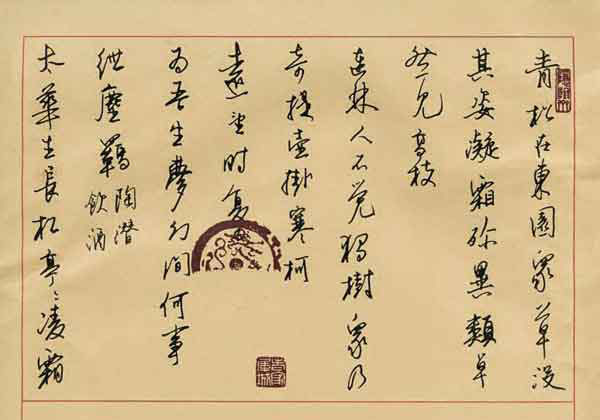 青松在東園眾草沒
其姿凝霜殄異類卓
然見高枝
連林人不觉獨樹眾乃
奇提壺掛寒柯
遠望時复
為吾生夢幻間何事
紲塵羈
陶潛
飲酒
太華生長松亭亭凌霜